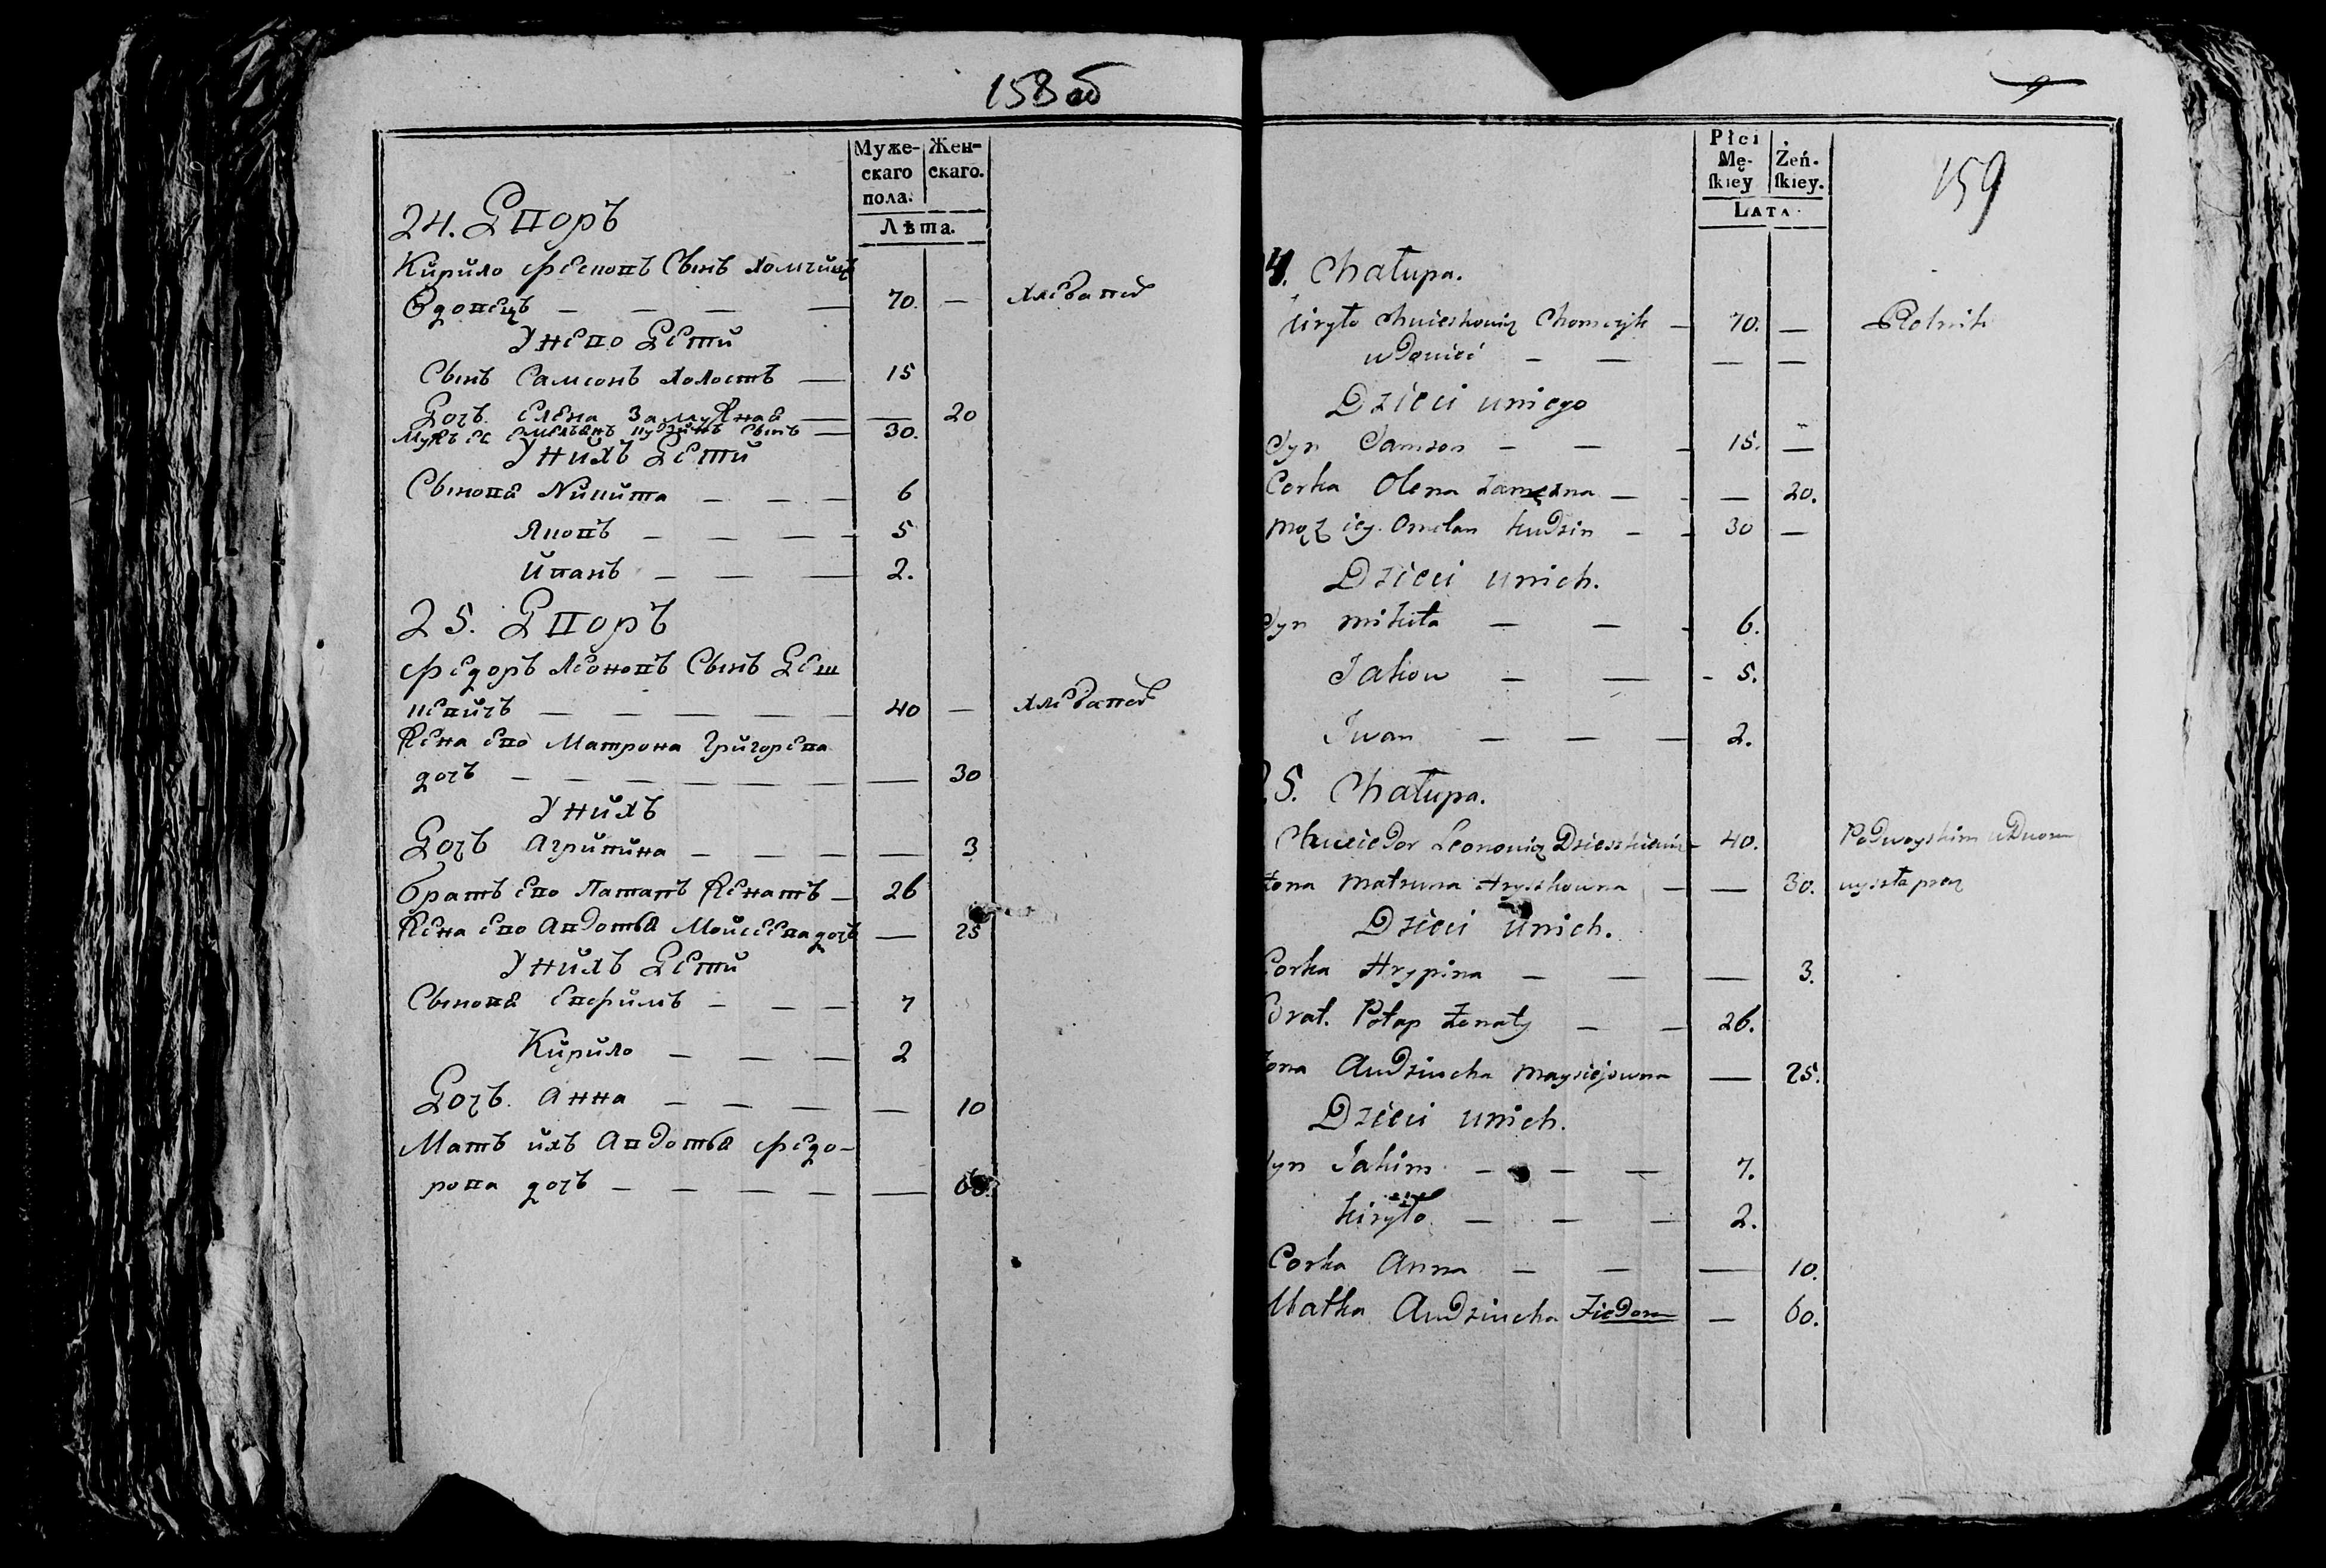 158 об
Муже-
скаго
пола.
Жен-
скаго.
Лѣта.
24. Дворъ
Кирило Фесковъ Сынъ Хомчицъ
Вдовецъ — — — — 70. — Хлебапец
У Него Дети
Сынъ Самсонъ Холостъ — 15
Дочъ Елена Замужная — — 20
Мужъ ее Емельянъ Кудзинъ Сынъ — 30.
У Нихъ Дети
Сыновя Никита — — — 6
Яковъ — — — — 5
Иванъ — — — 2.
25. Дворъ
Федоръ Леоновъ Сынъ Деш
кевичъ — — — — — 40 — Хлебапец
Жена Его Матрона Григорева
дочъ — — — — — — — 30
У Нихъ
Дочъ Агрипина — — — — 3
Братъ Его Патапъ Женатъ — 26
Жена Его Авдотья Мойсеева дочъ — 25
У Нихъ Дети
Сыновя Ефимъ — — — 7
Кирило — — — 2
Дочъ. Анна — — — — 10
Матъ ихъ Авдотья Федо-
рова дочъ — — — — — 60.
Płci
Mę-
skiey
Żeń-
skiey.
Lata
159
4. Chałupa.
Kiryło Chwieskowicz Chomczyk — 70. — Rolnik
wdowiec — — — —
Dzieci u niego
Syn Samson — — — 15. —
Corka Olena zamężna — — — 20.
Mąż iey Omelan Kudzin — — 30 —
Dzieci u nich.
Syn Mikita — — — 6.
Jakow — — - 5.
Iwan — — — 2.
25. Chałupa.
Chwiedor Leonowicz Dzieszkiewicz - 40. Podwoyskim w Dworze
Żona Matruna Hryszkowna — — 30.
Dzieci u nich.
Corka Hrypina — — — 3.
Brat. Potap Żonaty — — 26.
Żona Audziucha Maysiejowna — 25.
Dzieci u nich.
Syn Jakim — — — 7.
Kiryło — — — 2.
Corka Anna — — — 10.
Matka Audziucha Fiedor — 60.